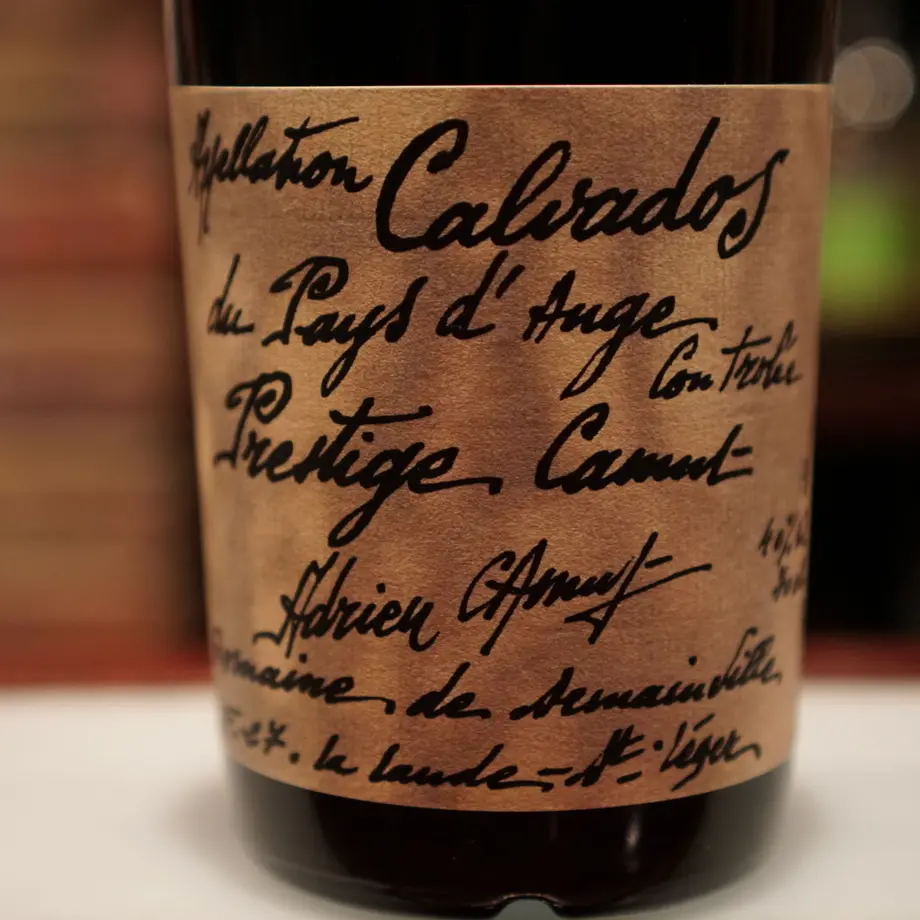 Appellation Calvados
du Pays d'Auge
Controlée
Prestige Camut
40%
Adrien Camut
Domaine de Semainville
la Lande - St. Léger